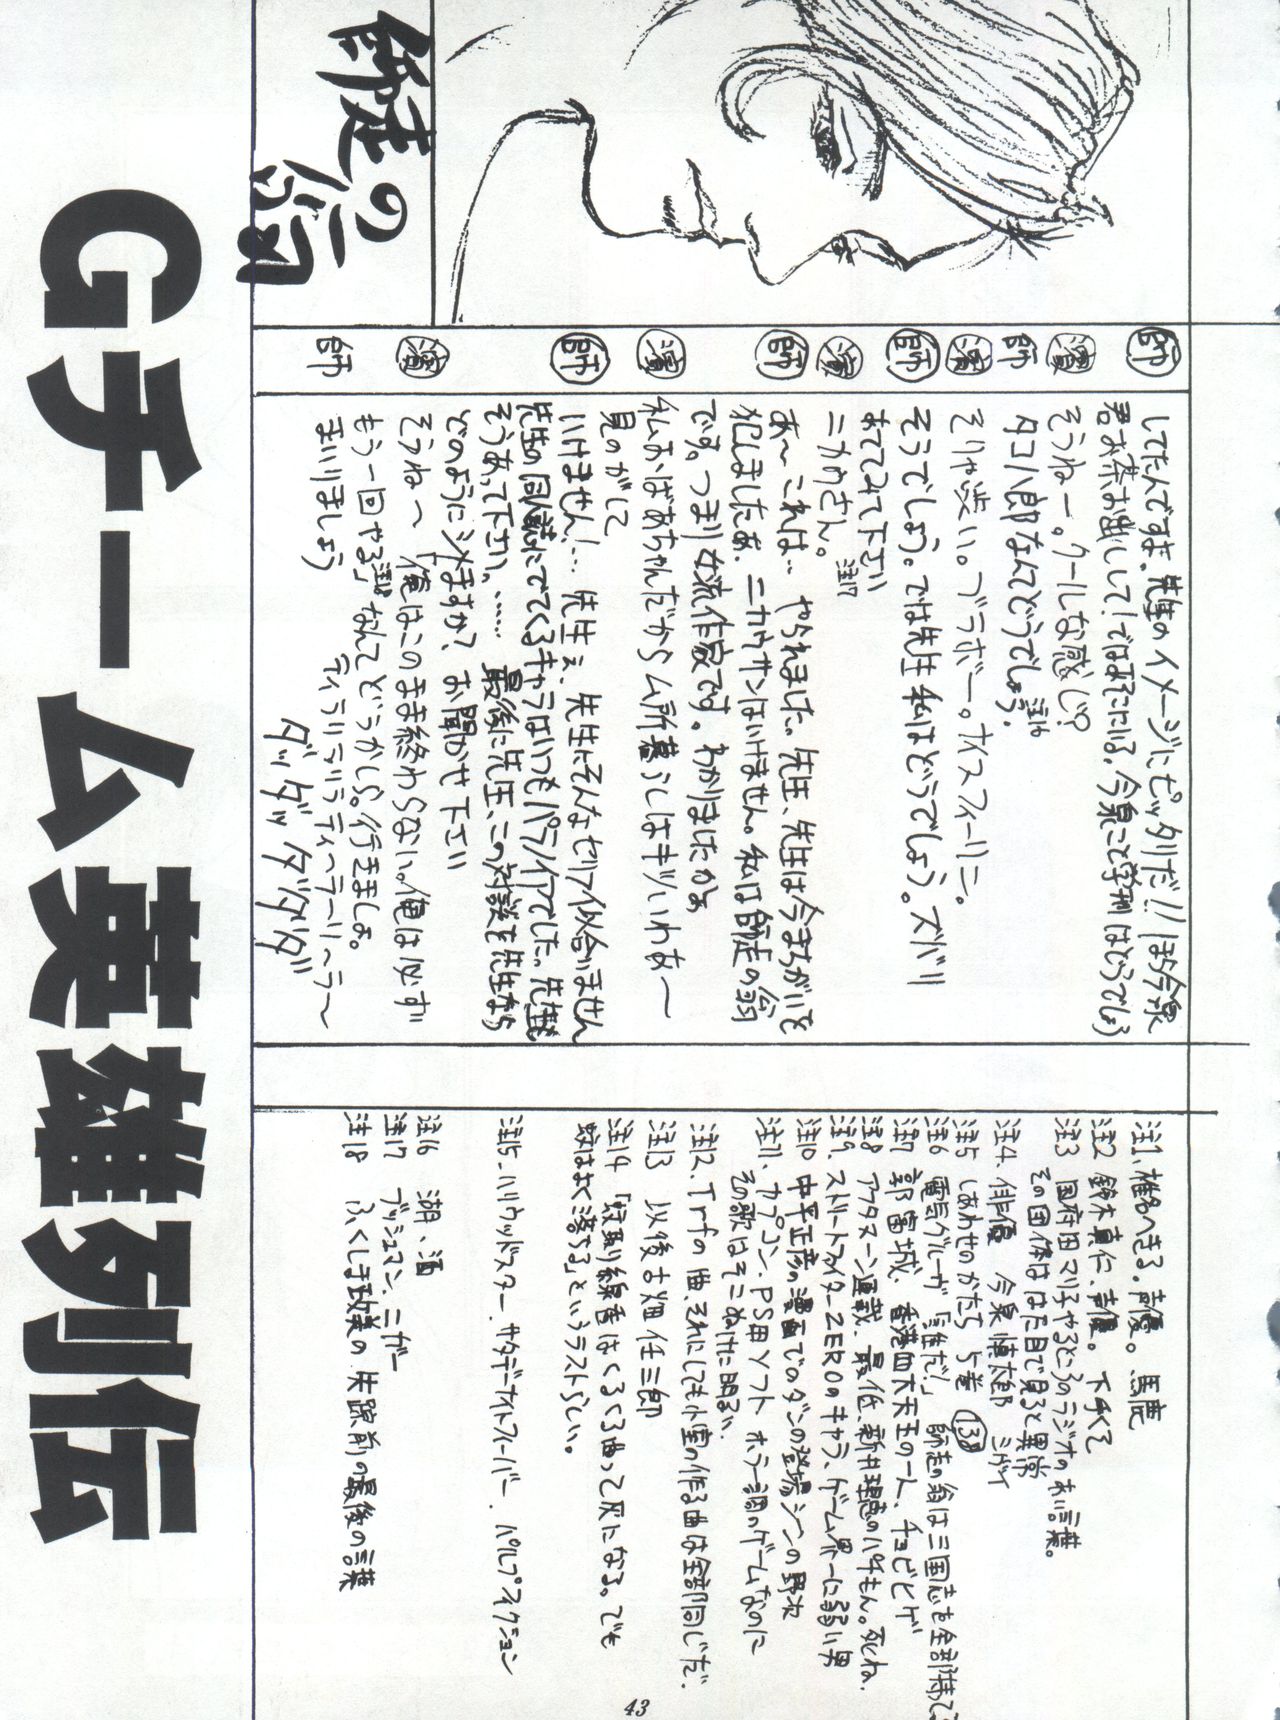 師走の翁
Gチーム英雄列伝
師 してたんですよ。先生のイメージにピッタリだ!!ほら今泉
君お茶お出しして!ではあそこにいる、今泉こと学刑はどうでしょう
濱 そうねー。クールな感じ?
師 タコ八郎なんてどうでしょう。注16
濱 そりゃ渋い。ブラボー。ナイスフィーリン。
師 そうでしょう。では先生私はどうでしょう。ズバリ
あててみて下さい
濱 ニカウさん。注17
師 あ〜これは… やられました。先生、先生は今まちがいを
犯しましたぁ。ニカウサンはいけません。私は師走の翁
です。つまり女流作家です。わかりましたかぁ
濱 私おばあちゃんだからム所暮らしはキツいわぁ〜
見のがして
師 いけません!… 先生ぇ、先生にそんなセリフ似合いません
先生の同人誌にでてくるキャラはいつもパラノイアでした。先生も
そうあって下さい、…… 最後に先生、この対談を先生なら
どのようにシメますか?お聞かせ下さい
濱 そうね〜 「俺はこのまま終わらない。俺は必ず
もう一回やる」注18なんてどうかしら。行きましょ。
師 まいりましょう
ティラリラリラティ〜ラ〜リ〜ラ〜
ダッダッダダダダ
注1、椎名へきる。声優。馬鹿
注2 鈴木真仁、声優。下手くて
注3 国府田マリ子やるどうのラジオのあい言葉。
その団体ははた目で見ると異常
注4、俳優 今泉慎太郎 ミザイ
注5 しあわせのかたち 5巻 138
注6 電気グルーヴ「誰だ!」 師走の翁は三国志を全部持って
注7 郭富城、香港四大天王の一人、チョビヒゲ
注8 アフタヌーン連載、最低、新井理恵のパチもん。死ね。
注9、ストリートファイターZEROのキャラ、ゲーム界一に弱い男
注10 中平正彦の漫画でのダンの登場シーンの野次
注11、カプコン、PS用ソフト ホラー調のゲームなのに
その歌はそこぬけに明るい。
注12、Trfの曲、それにしても小室の作る曲は全部同じだ。
注13 以後古畑任三郎
注14「蚊取り線香はくるくる曲って灰になる。でも
蚊はよく落ちる」というラストらしい。
注15、ハリウッドスター、サタデーナイトフィーバー、パルプフィクション
注16 湖、酒
注17 ブッシュマン、ニガー
注18 ふくしま政美の失踪前の最後の言葉
43